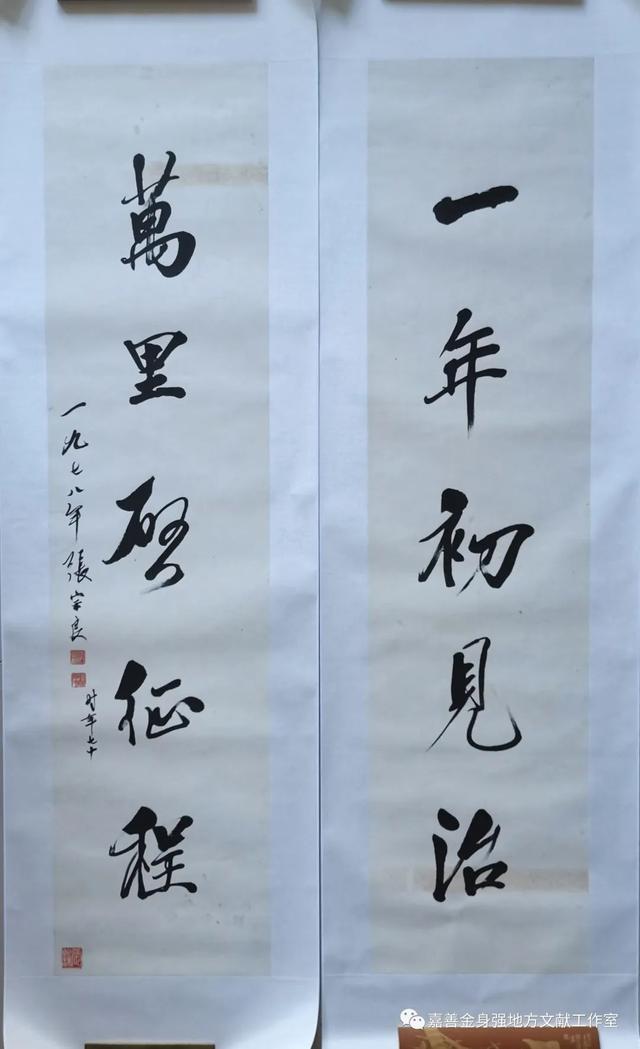 一年初見治
萬里啓征程
一九七八年 張宗良
时年七十
嘉善金身强地方文献工作室